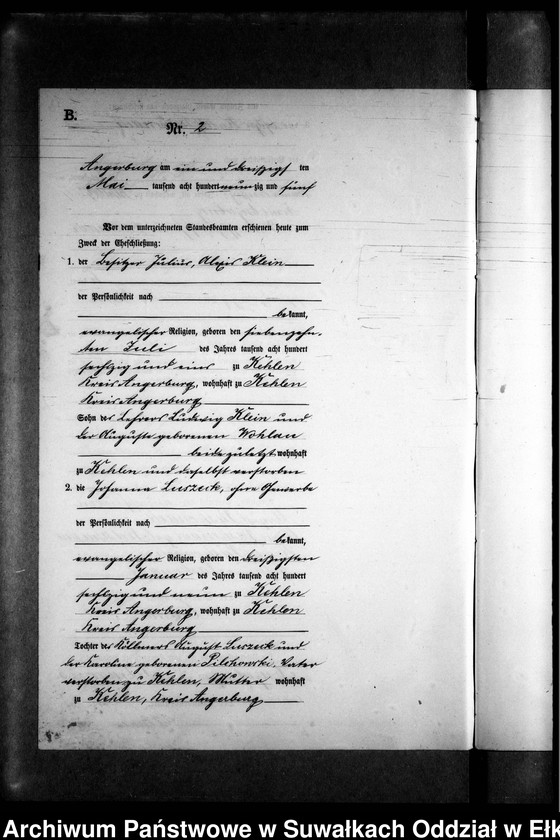 B.
Nr. 2
Angerburg am ein und dreißigsten
Mai tausend acht hundert neunzig und fünf
Vor dem unterzeichneten Standesbeamten erschienen heute zum
Zweck der Eheschließung:
1. der Besitzer Julius, Alexis Klein
der Persönlichkeit nach
bekannt,
evangelischer Religion, geboren den siebenzehn-
ten Juli des Jahres tausend acht hundert
sechszig und eins zu Kehlen
Kreis Angerburg, wohnhaft zu Kehlen
Kreis Angerburg
Sohn des Lehrers Ludwig Klein und
der Auguste geborenen Wohlau
beide zuletzt wohnhaft
zu Kehlen und daselbst verstorben
2. die Johanna Luszeck, ohne Gewerbe
der Persönlichkeit nach
bekannt,
evangelischer Religion, geboren den dreißigsten
Januar des Jahres tausend acht hundert
sechszig und neun zu Kehlen
Kreis Angerburg, wohnhaft zu Kehlen
Kreis Angerburg
Tochter des Köllmers August Luszeck und
der Karoline geborenen Pilchowski. Vater
verstorben zu Kehlen, Mutter wohnhaft
zu Kehlen, Kreis Angerburg
Archiwum Państwowe w Suwałkach Oddział w Ełk